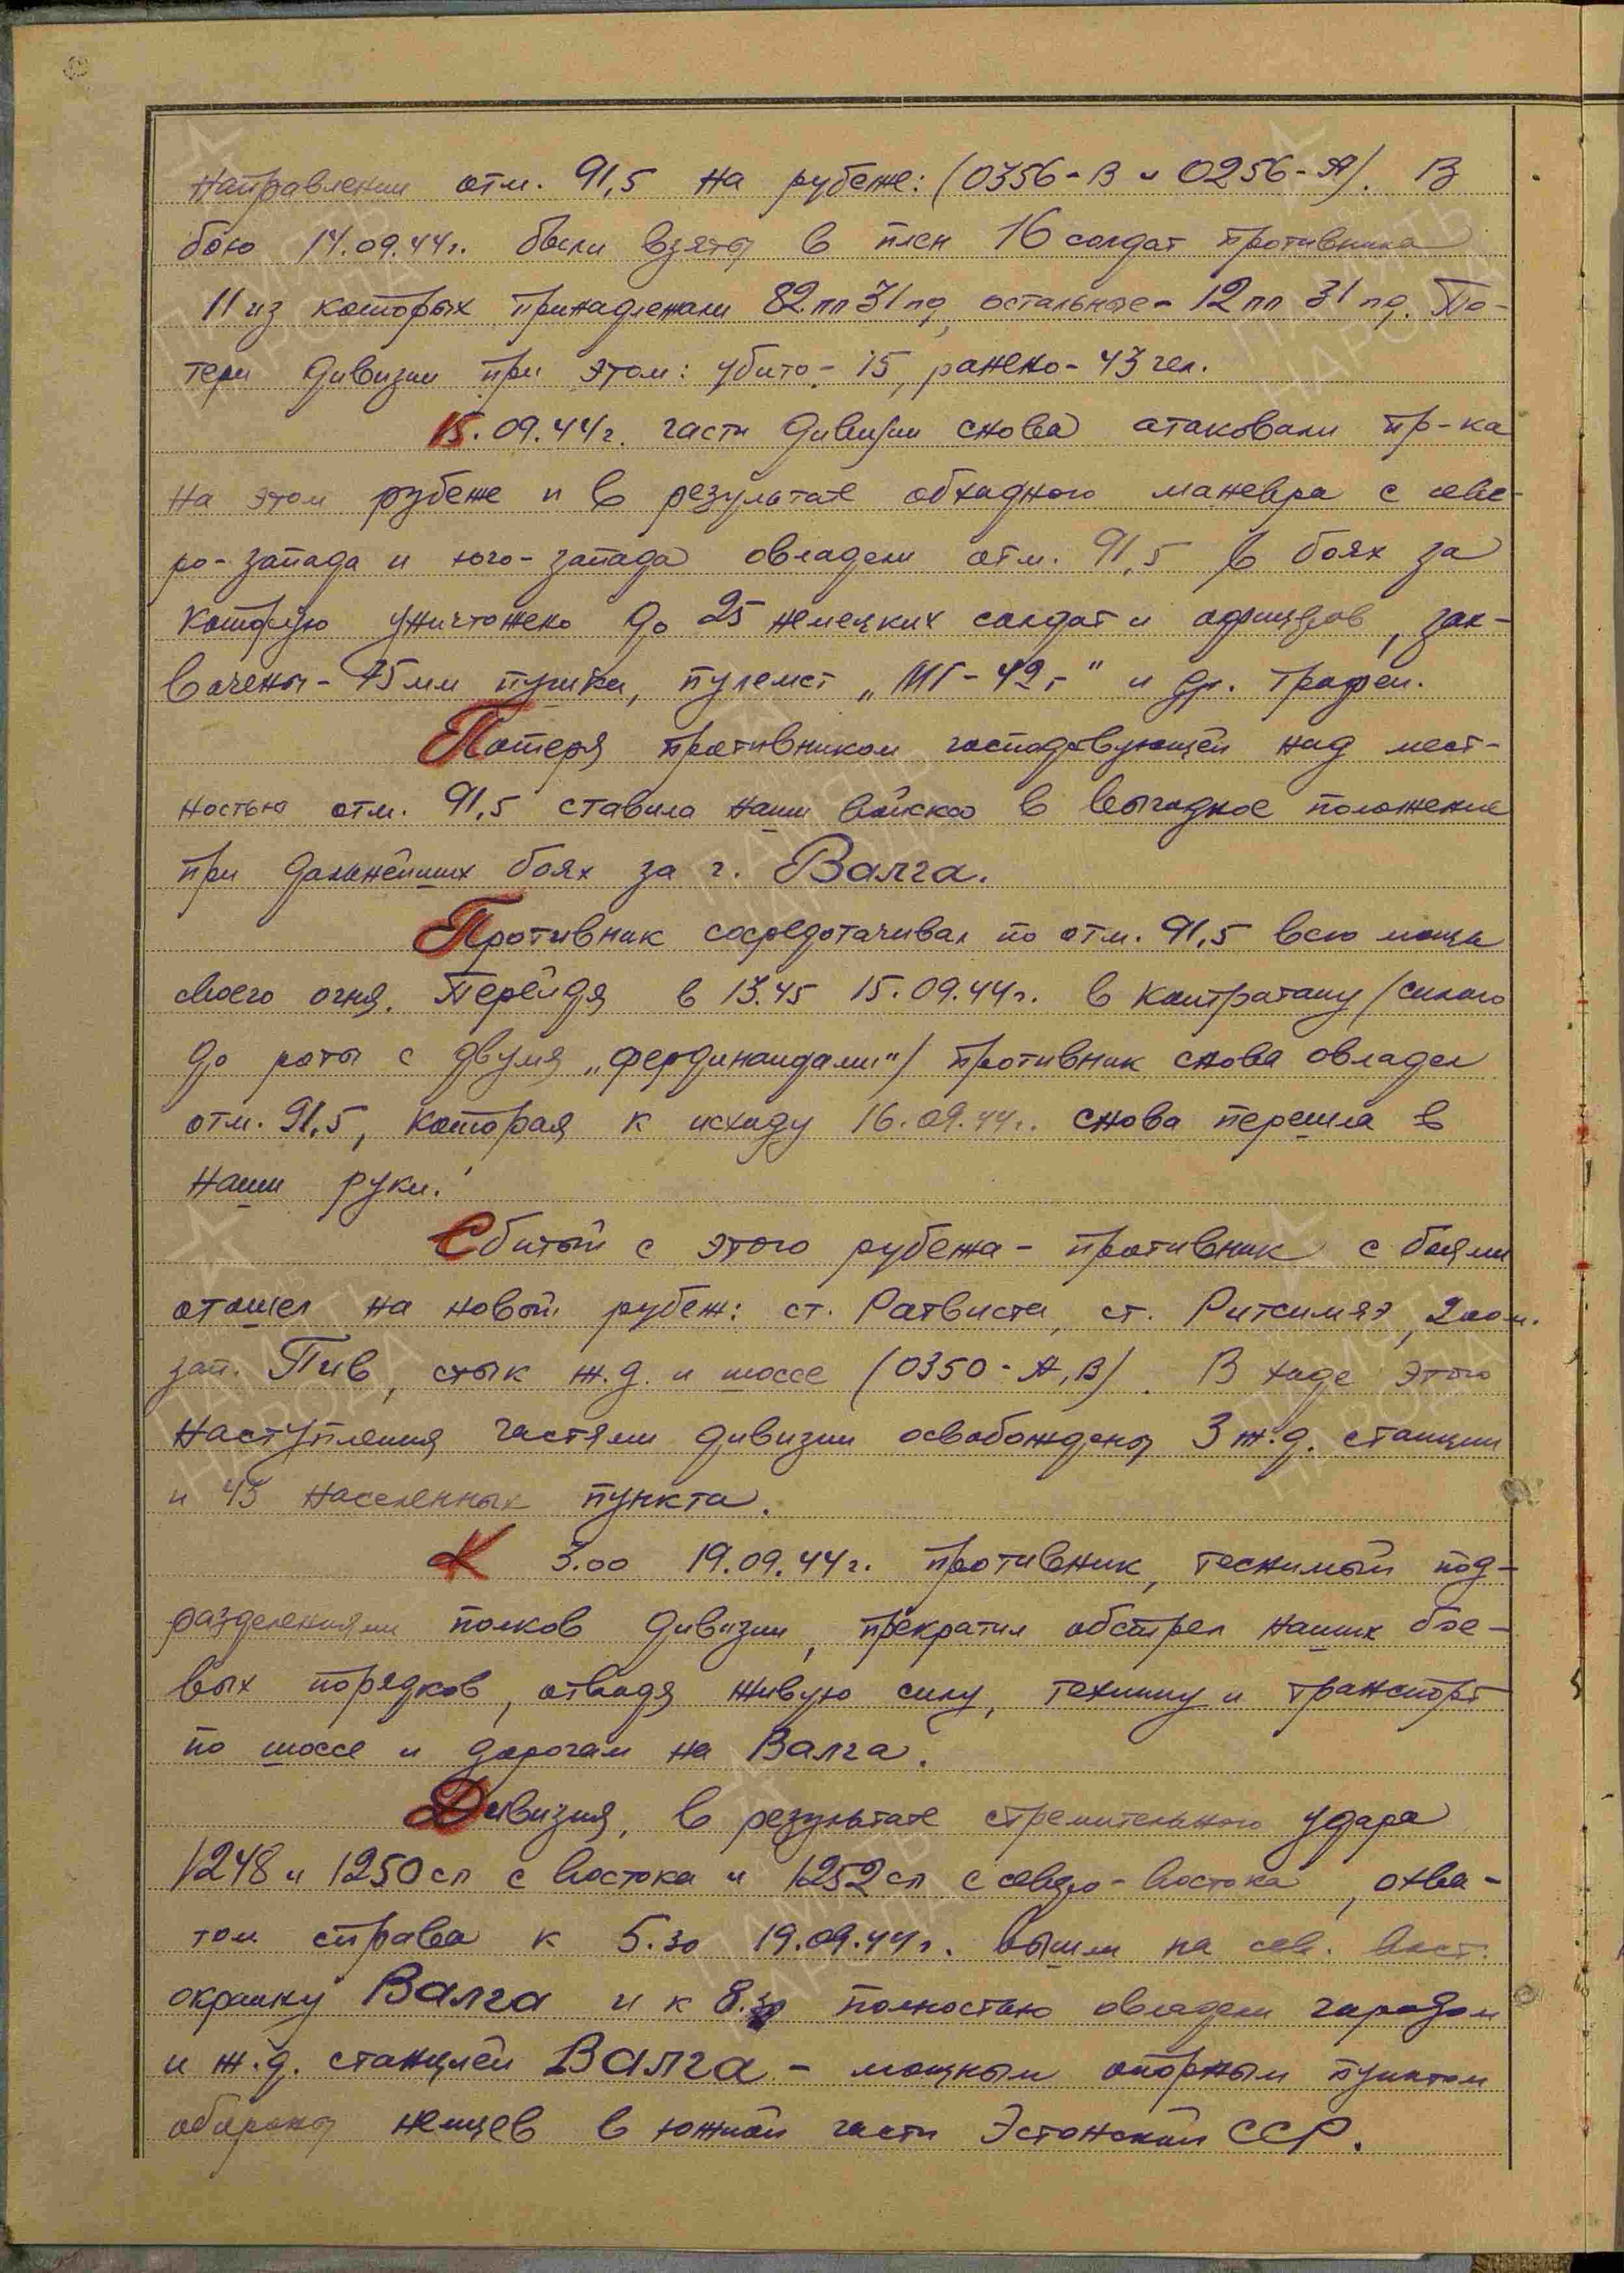 направлении отм. 91,5 на рубеже: (0356-В и 0256-А). В
бою 14.09.44г. были взяты в плен 16 солдат противника
11 из которых принадлежали 82 пп 31 пд, остальные - 12 пп 31 пд. По-
тери дивизии при этом: убито - 15, ранено - 43 чел.
15.09.44г. части дивизии снова атаковали пр-ка
на этом рубеже и в результате обходного маневра с севе-
ро-запада и юго-запада овладели отм. 91,5 в боях за
которую уничтожено до 25 немецких солдат и офицеров, зах-
вачены - 75 мм пушка, пулемет „МГ-42" и др. трофеи.
Потеря противником господствующей над мест-
ностью отм. 91,5 ставила наши войска в выгодное положение
при дальнейших боях за г. Валга.
Противник сосредотачивал по отм. 91,5 всю мощь
своего огня. Перейдя в 13.45 15.09.44г. в контратаку /силою
до роты с двумя „фердинандами"/ противник снова овладел
отм. 91,5, которая к исходу 16.09.44г. снова перешла в
наши руки.
Сбитый с этого рубежа - противник с боями
отошел на новый рубеж: ст. Ратвиста, ст. Ритсимяэ, 200 м.
зап. Пив, стык ж.д. и шоссе (0350-А,В). В ходе этого
наступления частями дивизии освобождены 3 ж.д. станции
и 43 населенных пункта.
К 3.00 19.09.44г. противник, теснимый под-
разделениями полков дивизии, прекратил обстрел наших бое-
вых порядков, отводя живую силу, технику и транспорт
по шоссе и дорогам на Валга.
Дивизия, в результате стремительного удара
1248 и 1250 сп с востока и 1252 сп с северо-востока, охва-
том справа к 5.30 19.09.44г. вышли на сев. вост.
окраину Валга и к 8.30 полностью овладели городом
и ж.д. станцией Валга - мощным опорным пунктом
обороны немцев в южной части Эстонской ССР.
ПАМЯТЬ
НАРОДА